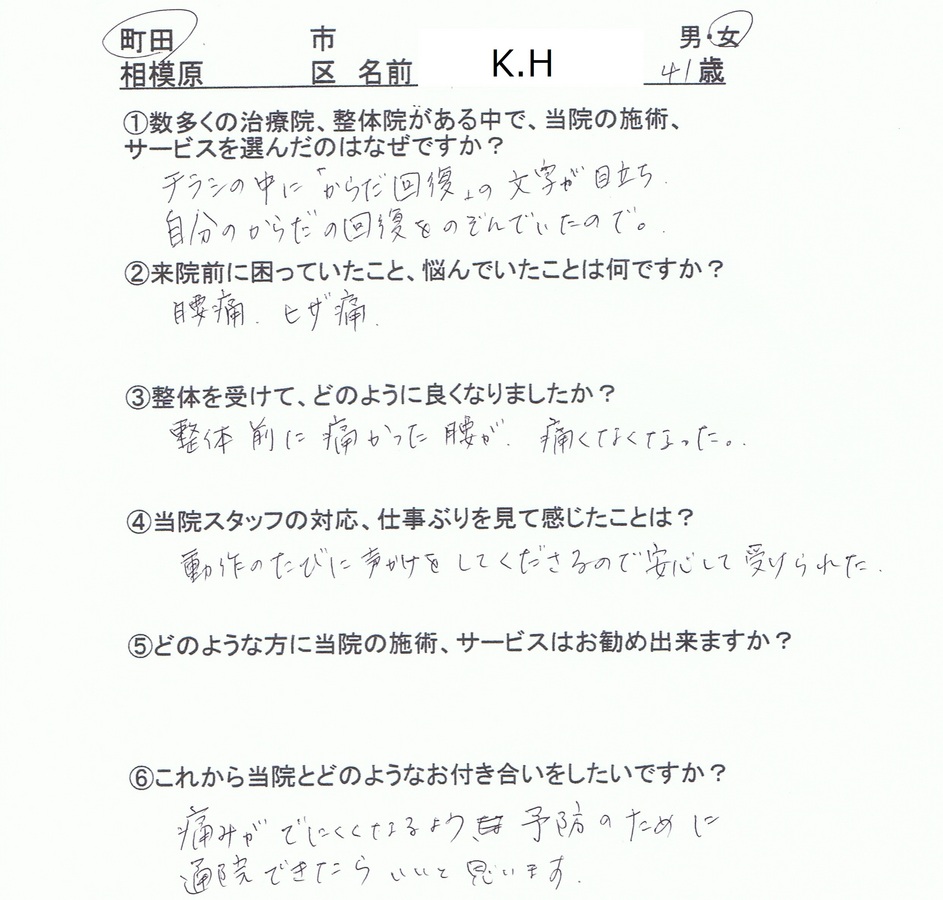 町田 市 男・女
相模原 区 名前 K.H 41歳
①数多くの治療院、整体院がある中で、当院の施術、
サービスを選んだのはなぜですか？
チラシの中に「からだ回復」の文字が目立ち.
自分のからだの回復をのぞんでいたので。.
②来院前に困っていたこと、悩んでいたことは何ですか？
腰痛. ヒザ痛.
③整体を受けて、どのように良くなりましたか？
整体前に痛かった腰が. 痛くなくなった。.
④当院スタッフの対応、仕事ぶりを見て感じたことは？
動作のたびに声かけをしてくださるので安心して受けられた.
⑤どのような方に当院の施術、サービスはお勧め出来ますか？
⑥これから当院とどのようなお付き合いをしたいですか？
痛みがでにくくなるよう 予防のために
通院できたらいいと思います.